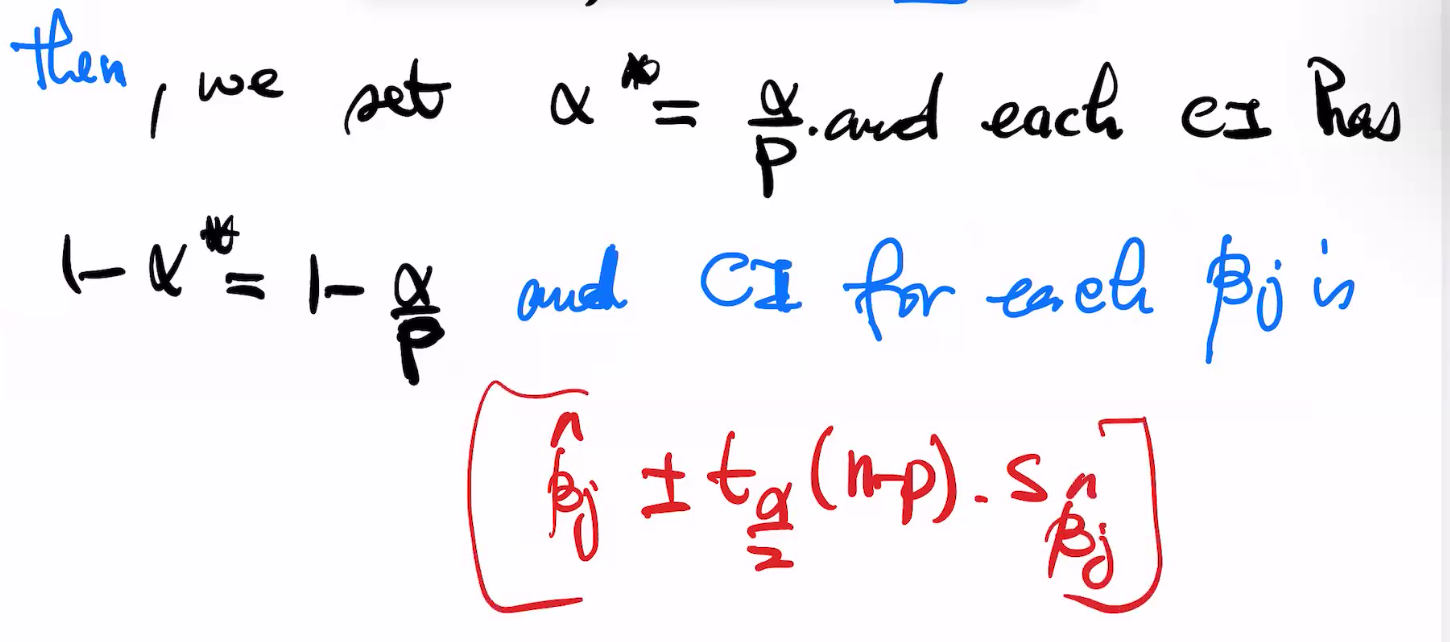 then, we set α* = α/p. and each CI has
1 - α* = 1 - α/p and CI for each βj is
[β̂j ± t_{α/2} (n-p) . S_{β̂j}]